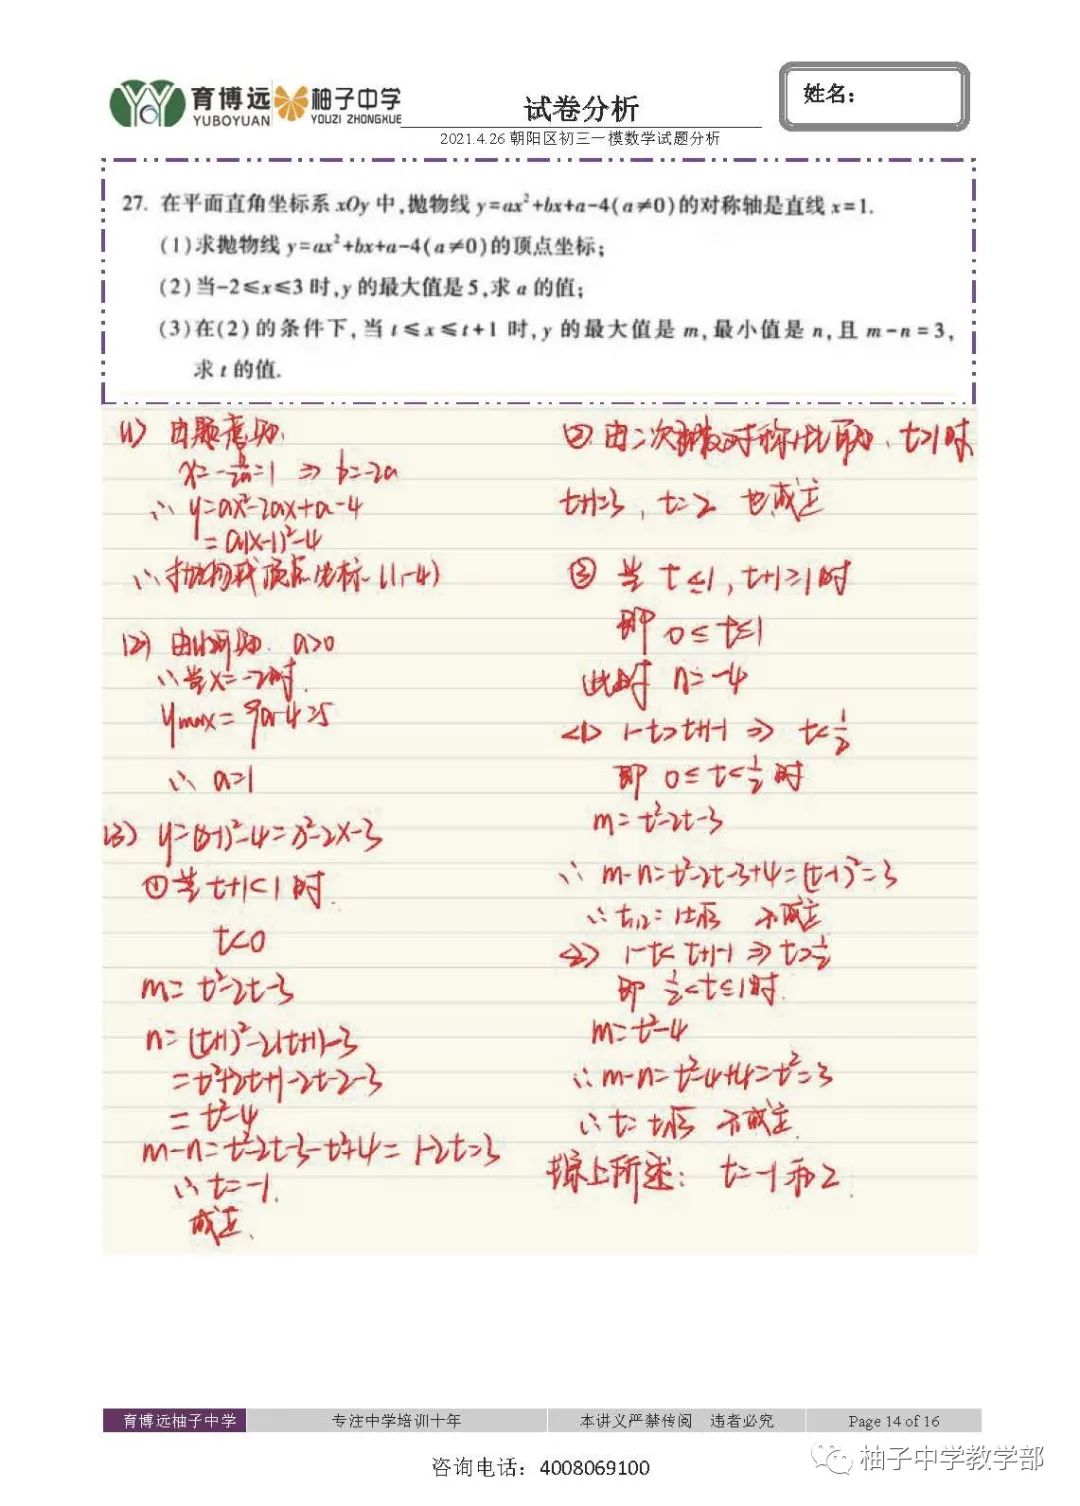 育博远
YUBOYUAN
柚子中学
YOUZI ZHONGXUE
试卷分析
姓名：
2021.4.26 朝阳区初三一模数学试题分析
27. 在平面直角坐标系 xOy 中,抛物线 y=ax²+bx+a-4(a≠0)的对称轴是直线 x=1.
(1)求抛物线 y=ax²+bx+a-4(a≠0)的顶点坐标;
(2)当-2≤x≤3 时,y 的最大值是 5,求 a 的值;
(3)在(2)的条件下,当 t≤x≤t+1 时,y 的最大值是 m,最小值是 n,且 m-n=3,
求 t 的值.
(1) 由题意知,
x=-b/2a=1 ⇒ b=-2a
∴ y=ax²-2ax+a-4
=a(x-1)²-4
∴抛物线顶点坐标(1,-4)
(2) 由(1)可知. a>0
∴当x=-2时.
ymax=9a-4=5
∴ a=1
(3) y=(x-1)²-4=x²-2x-3
①当t+1<1时.
t<0
m=t²-2t-3
n=(t+1)²-2(t+1)-3
=t²+2t+1-2t-2-3
=t²-4
m-n=t²-2t-3-t²+4=1-2t=3
∴t=-1.
成立.
② 由二次函数对称性可知、t>1时
t+1=3, t=2 也成立
③ 当 t≤1, t+1≥1时
即 0≤t≤1
此时 n=-4
<1> 1-t>t+1-1 ⇒ t<1/2
即 0≤t<1/2时
m=t²-2t-3
∴ m-n=t²-2t-3+4=(t-1)²=3
∴t₁,₂=1±√3 不成立
<2> 1-t<t+1-1 ⇒ t>1/2
即 1/2<t≤1时.
m=t²-4
∴m-n=t²-4+4=t²=3
∴t=±√3 不成立.
综上所述: t=-1和2.
育博远柚子中学 专注中学培训十年 本讲义严禁传阅 违者必究 Page 14 of 16
柚子中学教学部
咨询电话：4008069100